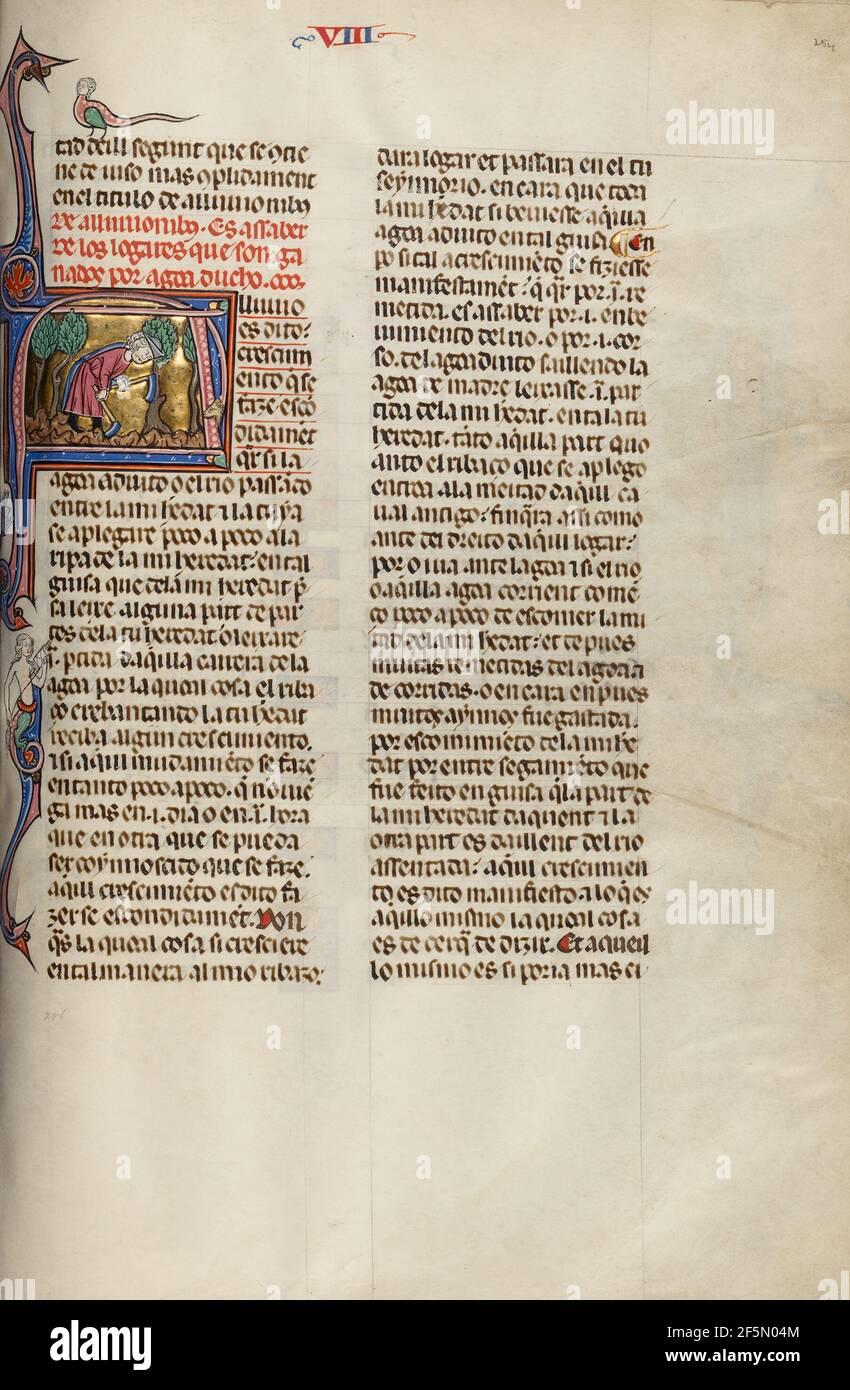 VIII
254
tad deill segunt que se 9tie
ne de iuso mas 9plidament
en el titulo de alluuionibȝ
De alluuionibȝ. Es assaber
de los logares que son ga
nados por agoa ducho.
lluuio
es dito:
crescim
ento q̄ se
faze esco
didamēt
q̄r si la
agoa aduito o el rio passādo
entre la mi hedat ⁊ la tuya
se aplegare poco a poco a la
ripa de la mi heredat: en tal
guisa que de la mi heredat p̄
sa leire alguna part de par
tes de la tu heredat o leixare
ī. ptida daq̄lla carrera de la
agoa por la quoal cosa el riba
ço crebantando la tu hedat
reciba algun crescimiento.
⁊ si aqui mudamiēto se faze
en tanto poco a poco. q̄ no uiē
ga mas en .i. dia o en .ī. hora
que en otra que se pueda
ser coynnoscido que se faze.
aq̄ll crescimiēto es dito fa
zer se escondidamēt. Don
q̄s la quoal cosa si cresciere
en tal manera al mio ribazo:
dura logar et passara en el tu
seynnorio. encara que toda
la mi hedat si beniesse aq̄lla
agoa aduito en tal guisa. En
po si tal acrescimiēto se fiziesse
manifestamēt: q̄ q̄r por .ī. re
metida. es assaber por .i. enbe
uimiento del rio. o por .i. cor
so. de la goa duito saillendo la
agoa de madre leixasse .ī. par
tida de la mi hedat. en ta la tu
heredat. tāto aq̄lla part quo
anto el ribaço que se aplego
entroa a la meitad daq̄ll ca
ual antigo: finq̄ra assi como
ante del dreito daq̄ll logar:
por o iua ante lagoa ⁊ si el rio
o aq̄lla agoa corrient comē
ço poco a poco de escomer la mi
tad de la mi hedat: et depues
muitas remetidas del agoa
de corridas. o encara en pues
muitos aynnos fue gastada.
por escomimiēto de la mi he
dat por entre segamiēto que
fue feito en guisa q̄ la part de
la mi heredat daquent ⁊ la
otra part es daillent del rio
assentada: aq̄ll crescimien
to es dito manifiesto. a lo q̄ es
aq̄llo mismo la quoal cosa
es de cerq̄ de dizir. Et aqueil
lo mismo es si poria mas ei
206
alamy
Image ID: 2F5N04M
www.alamy.com